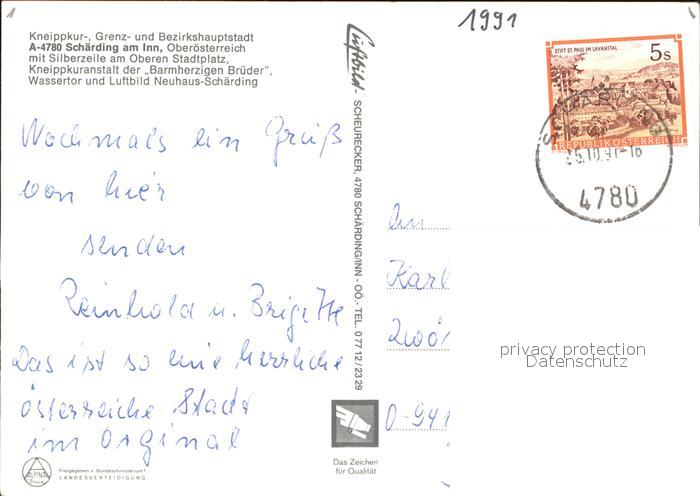 1991
Kneippkur-, Grenz- und Bezirkshauptstadt
A-4780 Schärding am Inn, Oberösterreich
mit Silberzeile am Oberen Stadtplatz,
Kneippkuranstalt der „Barmherzigen Brüder",
Wassertor und Luftbild Neuhaus-Schärding
Luftbild- SCHEURECKER, 4780 SCHÄRDING/INN - OÖ.- TEL. 0 77 12 / 23 29
STIFT ST. PAUL IM LAVANTTAL
5s
REPUBLIK ÖSTERREICH
4780
Nochmals ein Gruß
von hier
senden
Reinhold u. Brigitte
Das ist so eine herrliche
österreiche Stadt
im Orginal
An
Karl
privacy protection
Datenschutz
D-941
ALPINA
Freigegeben v. Bundesministerium f.
LANDESVERTEIDIGUNG
Das Zeichen
für Qualität